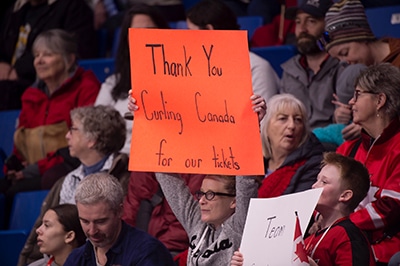 Thank You
Curling Canada
for our tickets
Team